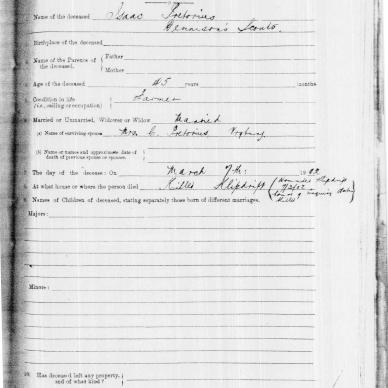 Name of the deceased Isaac Pretorius
Dennison's Scouts.
Birthplace of the deceased
Name of the Parents of the deceased. Father
Mother
Age of the deceased 45 years months
Condition in life Farmer
(i.e., calling or occupation)
Married or Unmarried, Widower or Widow Married
(a) Name of surviving spouse Mrs. C. Pretorius
(b) Name or names and approximate date of
death of previous spouse or spouses.
The day of the decease: On March 7th: 1902
At what house or where the person died Killed Klipdrift (
Names of Children of deceased, stating separately those born of different marriages.
Majors:
Minors:
10. Has deceased left any property,
and of what kind?